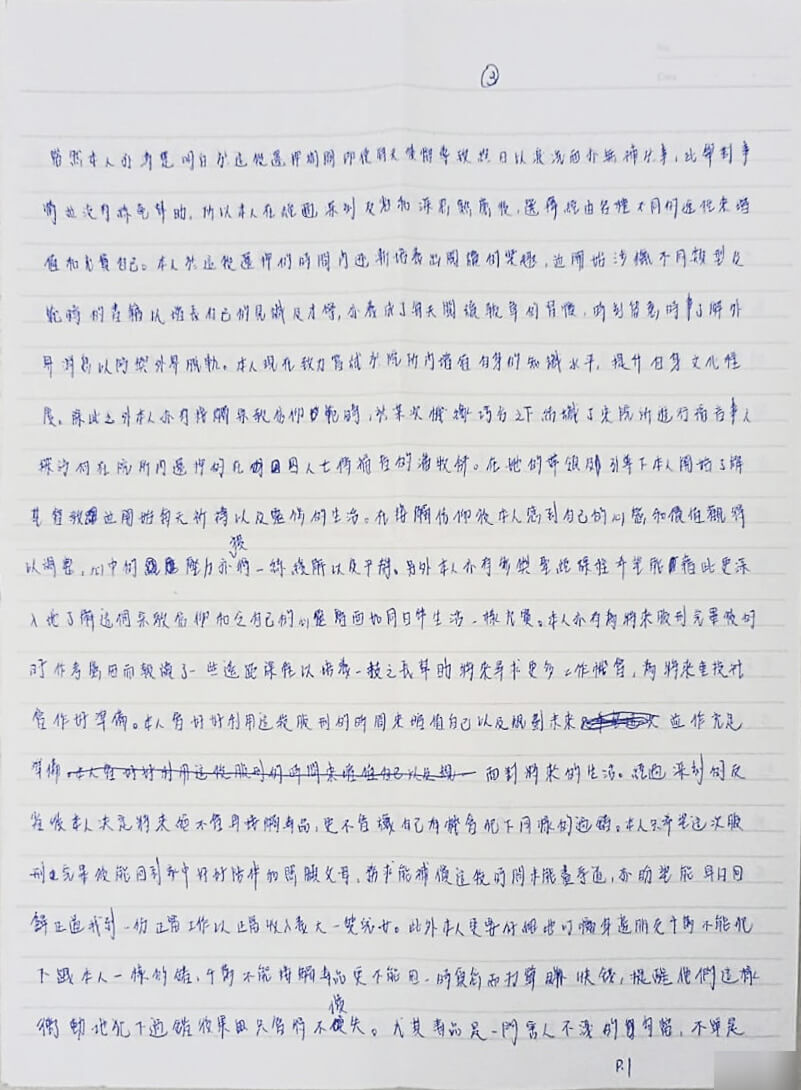 ③
雖然本人亦清楚明白於這段還押期間即使明天懊悔導致終日以淚洗面亦無補於事,此舉對事
情並沒有絲毫幫助,所以本人在經過深刻反省和深思熟慮後,選擇經由各種不同的途徑來增
值和充實自己。本人於這段還押的時間內逐漸培養出閱讀的興趣,並開始涉獵不同類型及
範疇的書籍以增長自己的見識及才學,亦養成了每天閱讀報章的習慣,時刻留意時事了解外
界消息以防與外界脫軌。本人現在致力嘗試於院所內增值自身的知識水平,提升自身文化程
度。除此之外本人亦有接觸宗教信仰範疇,於某次機緣巧合之下認識了來院所進行福音事人
探訪何在院所內還押的在囚人士傳福音的潘牧師。在她的帶領及引導下本人開始了解
基督教並開始每天祈禱以及靈修的生活。在接觸信仰後本人感到自己的心態和價值觀得
以調整,心中的壓力亦獲得一絲緩解以及平靜。另外本人亦有參與聖經課程希望能藉此更深
入地了解這個宗教信仰和令自己的心靈層面如同日常生活一樣充實。本人亦有為將來服刑完畢後的
工作考慮因而報讀了一些遙距課程以培養一技之長幫助將來尋求更多工作機會,為將來重投社
會作好準備。本人會好好利用這段服刑的時間來增值自己以及規劃未來 並作充足
準備 面對將來的生活。經過深刻的反
省後本人決定將來絕不會再接觸毒品,更不會讓自己有機會犯下同樣的過錯。本人只希望這次服
刑完畢後能回到家中好好陪伴和照顧父母,務求能補償這段時間未能盡孝道,亦盼望能早日回
歸正道找到一份正當工作以正當收入養大一雙兒女。此外本人更要仔細地叮囑身邊朋友千萬不能犯
下跟本人一樣的錯,千萬不能接觸毒品更不能因一時貪念而打算賺快錢,提醒他們這樣
衝動地犯下過錯後果只會得不償失。尤其毒品是一門害人不淺的勾當,不單是
P.1